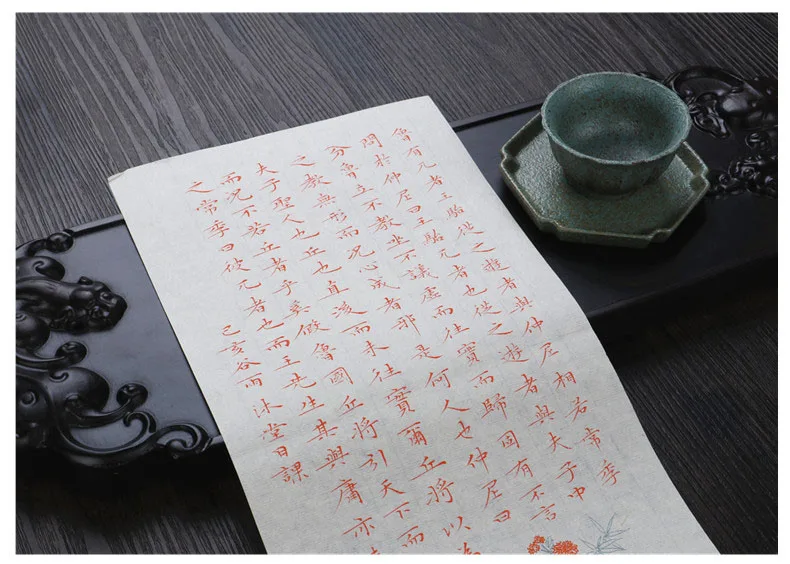 魯有兀者王駘從之遊者與仲尼相若常季
問於仲尼曰王駘兀者也從之遊者與夫子中
分魯立不教坐不議虛而往實而歸固有不言
之教與形而況心成者邪是何人也仲尼曰
夫子聖人也丘也直後而未往實爾丘將以為
而況不若丘者乎奚假魯國丘將引天下而
之常季曰彼兀者也而王先生其與庸亦
己亥谷雨沐堂日課